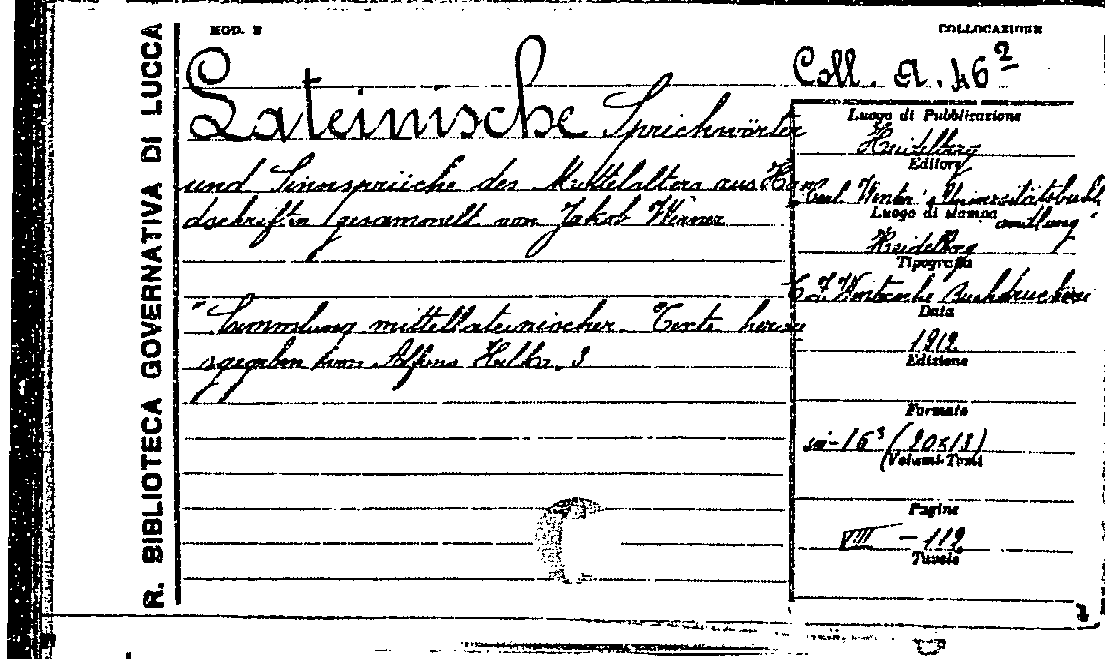 R. BIBLIOTECA GOVERNATIVA DI LUCCA
MOD. E
COLLOCAZIONE
Coll. A. 46²
Lateinische Sprichwörter
und Sinnsprüche des Mittelalters aus Han
dschriften gesammelt von Jakob Werner
"Sammlung mittellateinischer Texte herau
sgegeben von Alfons Hilka. 3
Luogo di Pubblicazione
Heidelberg
Editore
Carl Winter's Universitätsbuch
andlung"
Luogo di stampa
Heidelberg
Tipografia
C. F. Wintersche Buchdruckerei
Data
1912
Edizione
Formato
in-16° (20x13)
Volumi-Tomi
Pagine
VIII - 112
Tavole